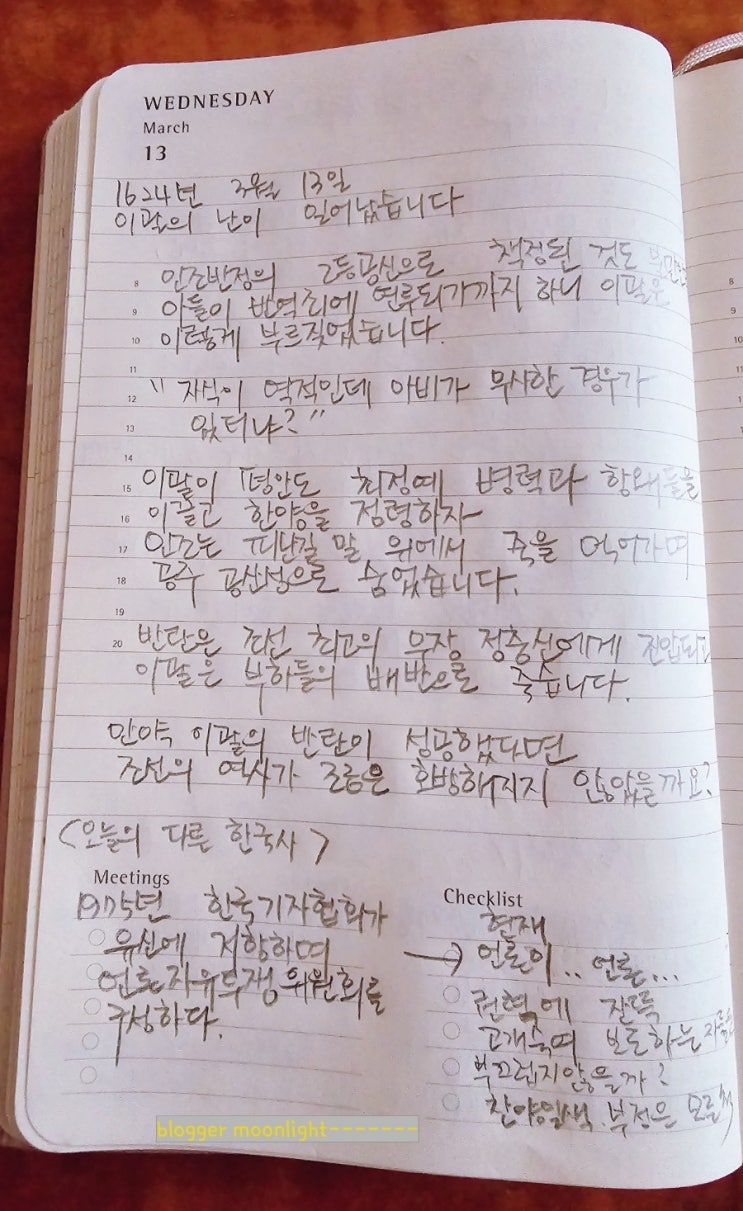 WEDNESDAY
March
13
1624년 3월 13일
이괄의 난이 일어났습니다
8 인조반정의 2등공신으로 책정된 것도
9 아들이 반역죄에 연루되기까지 하니 이괄은
10 이렇게 부르짖었습니다.
11
12 " 자식이 역적인데 아비가 무사한 경우가
13 있더냐? "
14
15 이괄이 평안도 최정예 병력과 항왜들을
16 이끌고 한양을 점령하자
17 인조는 피난길 말 위에서 죽을 먹어가며
18 공주 공산성으로 숨었습니다.
19
20 반란은 조선 최고의 무장 정충신에게 진압되고
이괄은 부하들의 배반으로 죽습니다.
만약 이괄의 반란이 성공했다면
조선의 역사가 조금은 화방해지지 않았을까요?
<오늘의 다른 한국사>
Meetings
1975년 한국기자협회가
유신에 저항하며
언론자유투쟁위원회를
구성하다.
Checklist
현재
→ 언론이.. 언론...
권력에 잔뜩
고개숙여 보도하는 자들은
부끄럽지않을까?
찬양일색. 부정은 모른척
8
9
10
11
blogger moonlight-------